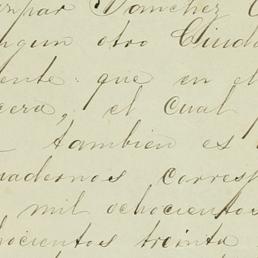 Sanchez
ingun otro Ciuda
ente que en el
cera, el cual
tambien es
uadernos corresp
mil ochocientos
hocientos treinta